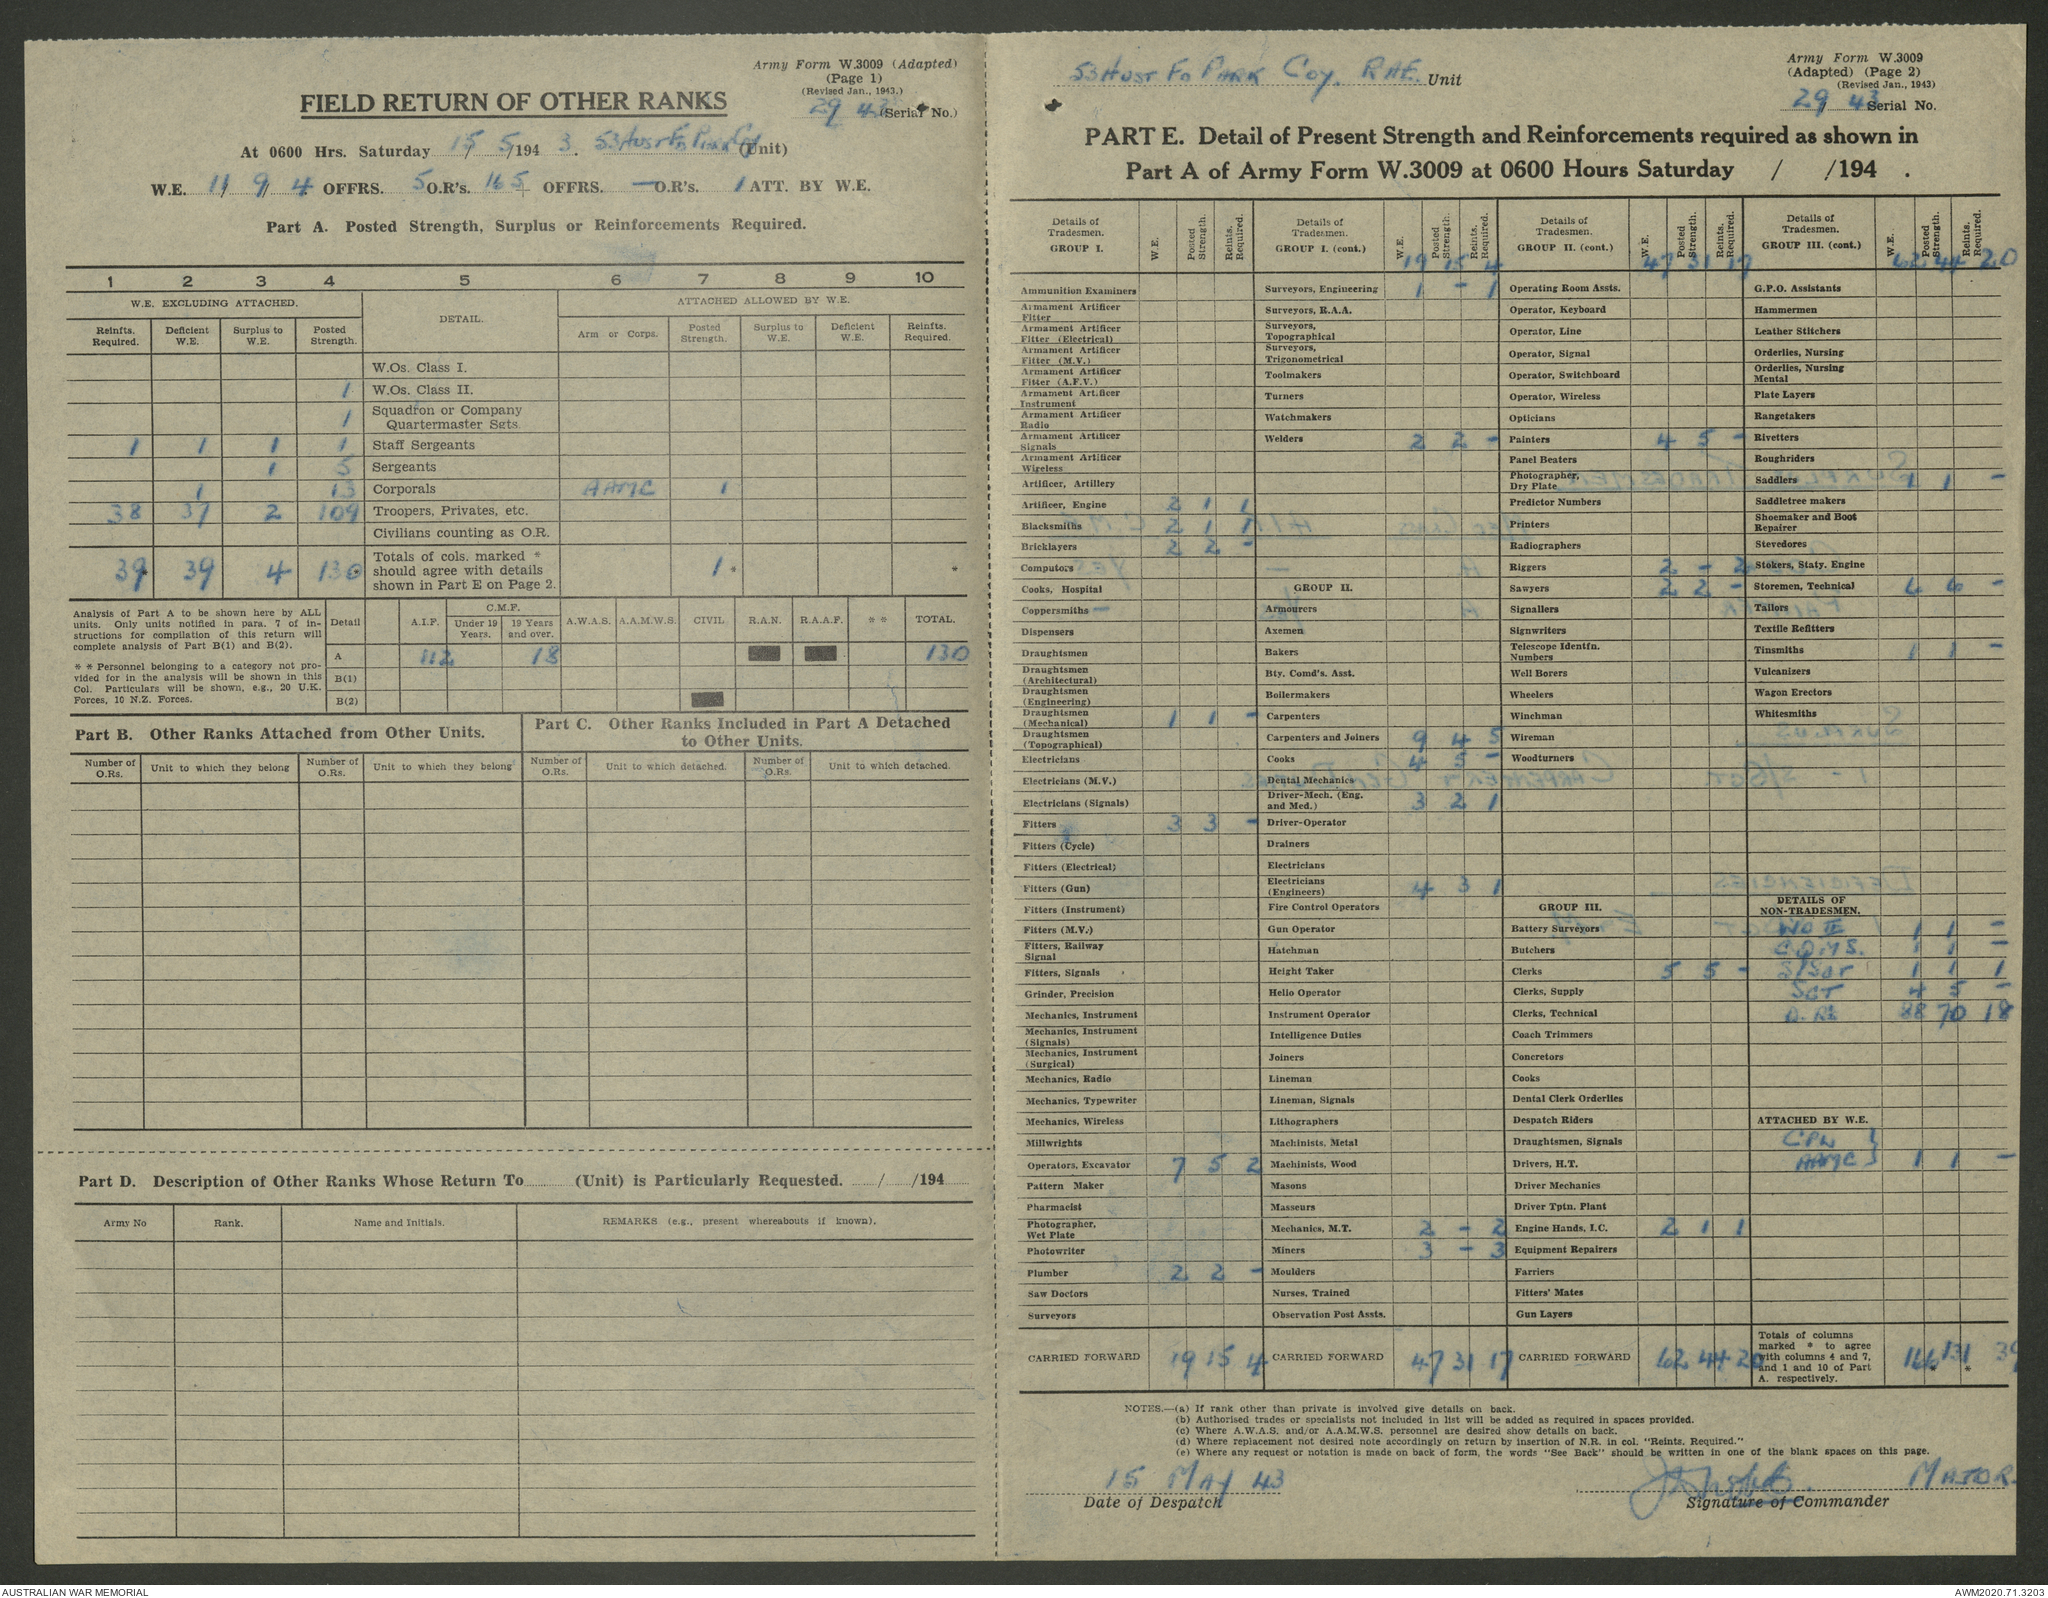 Army Form W.3009 (Adapted)
(Page 1)
(Revised Jan., 1943.)
29/43 (Serial No.)
FIELD RETURN OF OTHER RANKS
At 0600 Hrs. Saturday 15/5/1943. 53 Aust Fd Park Coy (Unit)
W.E. 11/9/4 OFFRS. 5 O.R's. 165 OFFRS. — O.R's. 1 ATT. BY W.E.
Part A. Posted Strength, Surplus or Reinforcements Required.
1 2 3 4 5 6 7 8 9 10
W.E. EXCLUDING ATTACHED. DETAIL. ATTACHED ALLOWED BY W.E.
Reinfts. Required. Deficient W.E. Surplus to W.E. Posted Strength. Arm or Corps. Posted Strength. Surplus to W.E. Deficient W.E. Reinfts. Required.
W.Os. Class I.
1 W.Os. Class II.
1 Squadron or Company Quartermaster Sgts.
1 1 1 1 Staff Sergeants
1 5 Sergeants
1 13 Corporals AAMC 1
38 37 2 109 Troopers, Privates, etc.
Civilians counting as O.R.
39* 39 4 130* Totals of cols. marked * should agree with details shown in Part E on Page 2. 1 * *
Analysis of Part A to be shown here by ALL units. Only units notified in para. 7 of instructions for compilation of this return will complete analysis of Part B(1) and B(2).
* * Personnel belonging to a category not provided for in the analysis will be shown in this Col. Particulars will be shown, e.g., 20 U.K. Forces, 10 N.Z. Forces.
Detail A.I.F. C.M.F. Under 19 Years. 19 Years and over. A.W.A.S. A.A.M.W.S. CIVIL R.A.N. R.A.A.F. * * TOTAL.
A 112 18 130
B(1)
B(2)
Part B. Other Ranks Attached from Other Units.
Part C. Other Ranks Included in Part A Detached to Other Units.
Number of O.Rs. Unit to which they belong Number of O.Rs. Unit to which they belong Number of O.Rs. Unit to which detached. Number of O.Rs. Unit to which detached.
Part D. Description of Other Ranks Whose Return To (Unit) is Particularly Requested. / /194
Army No Rank. Name and Initials. REMARKS (e.g., present whereabouts if known).
53 Aust Fd Park Coy. RAE. Unit
Army Form W.3009
(Adapted) (Page 2)
(Revised Jan., 1943)
29/43 Serial No.
PART E. Detail of Present Strength and Reinforcements required as shown in
Part A of Army Form W.3009 at 0600 Hours Saturday / /194 .
Details of Tradesmen. GROUP I. W.E. Posted Strength. Reints. Required.
Ammunition Examiners
Armament Artificer Fitter
Armament Artificer Fitter (Electrical)
Armament Artificer Fitter (M.V.)
Armament Artificer Fitter (A.F.V.)
Armament Artificer Instrument
Armament Artificer Radio
Armament Artificer Signals
Armament Artificer Wireless
Artificer, Artillery
Artificer, Engine 2 1 1
Blacksmiths 2 1 1
Bricklayers 2 2 -
Computors
Cooks, Hospital
Coppersmiths
Dispensers
Draughtsmen
Draughtsmen (Architectural)
Draughtsmen (Engineering)
Draughtsmen (Mechanical) 1 1 -
Draughtsmen (Topographical)
Electricians
Electricians (M.V.)
Electricians (Signals)
Fitters 3 3 -
Fitters (Cycle)
Fitters (Electrical)
Fitters (Gun)
Fitters (Instrument)
Fitters (M.V.)
Fitters, Railway Signal
Fitters, Signals
Grinder, Precision
Mechanics, Instrument
Mechanics, Instrument (Signals)
Mechanics, Instrument (Surgical)
Mechanics, Radio
Mechanics, Typewriter
Mechanics, Wireless
Millwrights
Operators, Excavator 7 5 2
Pattern Maker
Pharmacist
Photographer, Wet Plate
Photowriter
Plumber 2 2 -
Saw Doctors
Surveyors
CARRIED FORWARD 19 15 4
Details of Tradesmen. GROUP I. (cont.) W.E. Posted Strength. Reints. Required.
19 15 4
Surveyors, Engineering 1 - 1
Surveyors, R.A.A.
Surveyors, Topographical
Surveyors, Trigonometrical
Toolmakers
Turners
Watchmakers
Welders 2 2 -
GROUP II.
Armourers
Axemen
Bakers
Bty. Comd's. Asst.
Boilermakers
Carpenters
Carpenters and Joiners 9 4 5
Cooks 4 5 -
Dental Mechanics
Driver-Mech. (Eng. and Med.) 3 2 1
Driver-Operator
Drainers
Electricians
Electricians (Engineers) 4 3 1
Fire Control Operators
Gun Operator
Hatchman
Height Taker
Helio Operator
Instrument Operator
Intelligence Duties
Joiners
Lineman
Lineman, Signals
Lithographers
Machinists, Metal
Machinists, Wood
Masons
Masseurs
Mechanics, M.T. 2 - 2
Miners 3 - 3
Moulders
Nurses, Trained
Observation Post Assts.
CARRIED FORWARD 47 31 17
Details of Tradesmen. GROUP II. (cont.) W.E. Posted Strength. Reints. Required.
47 31 17
Operating Room Assts.
Operator, Keyboard
Operator, Line
Operator, Signal
Operator, Switchboard
Operator, Wireless
Opticians
Painters 4 5 -
Panel Beaters
Photographer, Dry Plate
Predictor Numbers
Printers
Radiographers
Riggers 2 - 2
Sawyers 2 2 -
Signallers
Signwriters
Telescope Identfn. Numbers
Well Borers
Wheelers
Winchman
Wireman
Woodturners
GROUP III.
Battery Surveyors
Butchers
Clerks 5 5 -
Clerks, Supply
Clerks, Technical
Coach Trimmers
Concretors
Cooks
Dental Clerk Orderlies
Despatch Riders
Draughtsmen, Signals
Drivers, H.T.
Driver Mechanics
Driver Tptn. Plant
Engine Hands, I.C. 2 1 1
Equipment Repairers
Farriers
Fitters' Mates
Gun Layers
CARRIED FORWARD 62 44 20
Details of Tradesmen. GROUP III. (cont.) W.E. Posted Strength. Reints. Required.
62 44 20
G.P.O. Assistants
Hammermen
Leather Stitchers
Orderlies, Nursing
Orderlies, Nursing Mental
Plate Layers
Rangetakers
Rivetters
Roughriders
Saddlers 1 1 -
Saddletree makers
Shoemaker and Boot Repairer
Stevedores
Stokers, Staty. Engine
Storemen, Technical 6 6 -
Tailors
Textile Refitters
Tinsmiths 1 1 -
Vulcanizers
Wagon Erectors
Whitesmiths
DETAILS OF NON-TRADESMEN.
WO II 1 1 -
C.Q.M.S. 1 1 -
S/Sgt 1 1 1
Sgt 4 5 -
O.Rs 88 70 18
ATTACHED BY W.E.
CPL }
AAMC } 1 1 -
Totals of columns marked * to agree with columns 4 and 7, and 1 and 10 of Part A. respectively. 166 131 39
* *
NOTES.—(a) If rank other than private is involved give details on back.
(b) Authorised trades or specialists not included in list will be added as required in spaces provided.
(c) Where A.W.A.S. and/or A.A.M.W.S. personnel are desired show details on back.
(d) Where replacement not desired note accordingly on return by insertion of N.R. in col. "Reints. Required."
(e) Where any request or notation is made on back of form, the words "See Back" should be written in one of the blank spaces on this page.
15 May 43 Major
Date of Despatch Signature of Commander
AUSTRALIAN WAR MEMORIAL AWM2020.71.3203